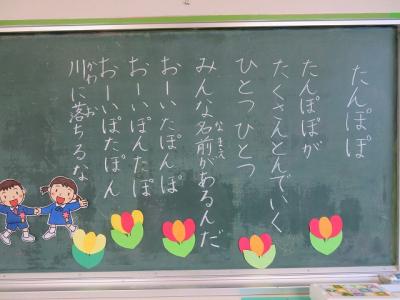 たんぽぽ
たんぽぽが
たくさんとんでいく
ひとつひとつ
みんな名前があるんだ
おーいたぽんぽ
おーいぽんたぽ
おーいぽたぽん
川に落ちるな